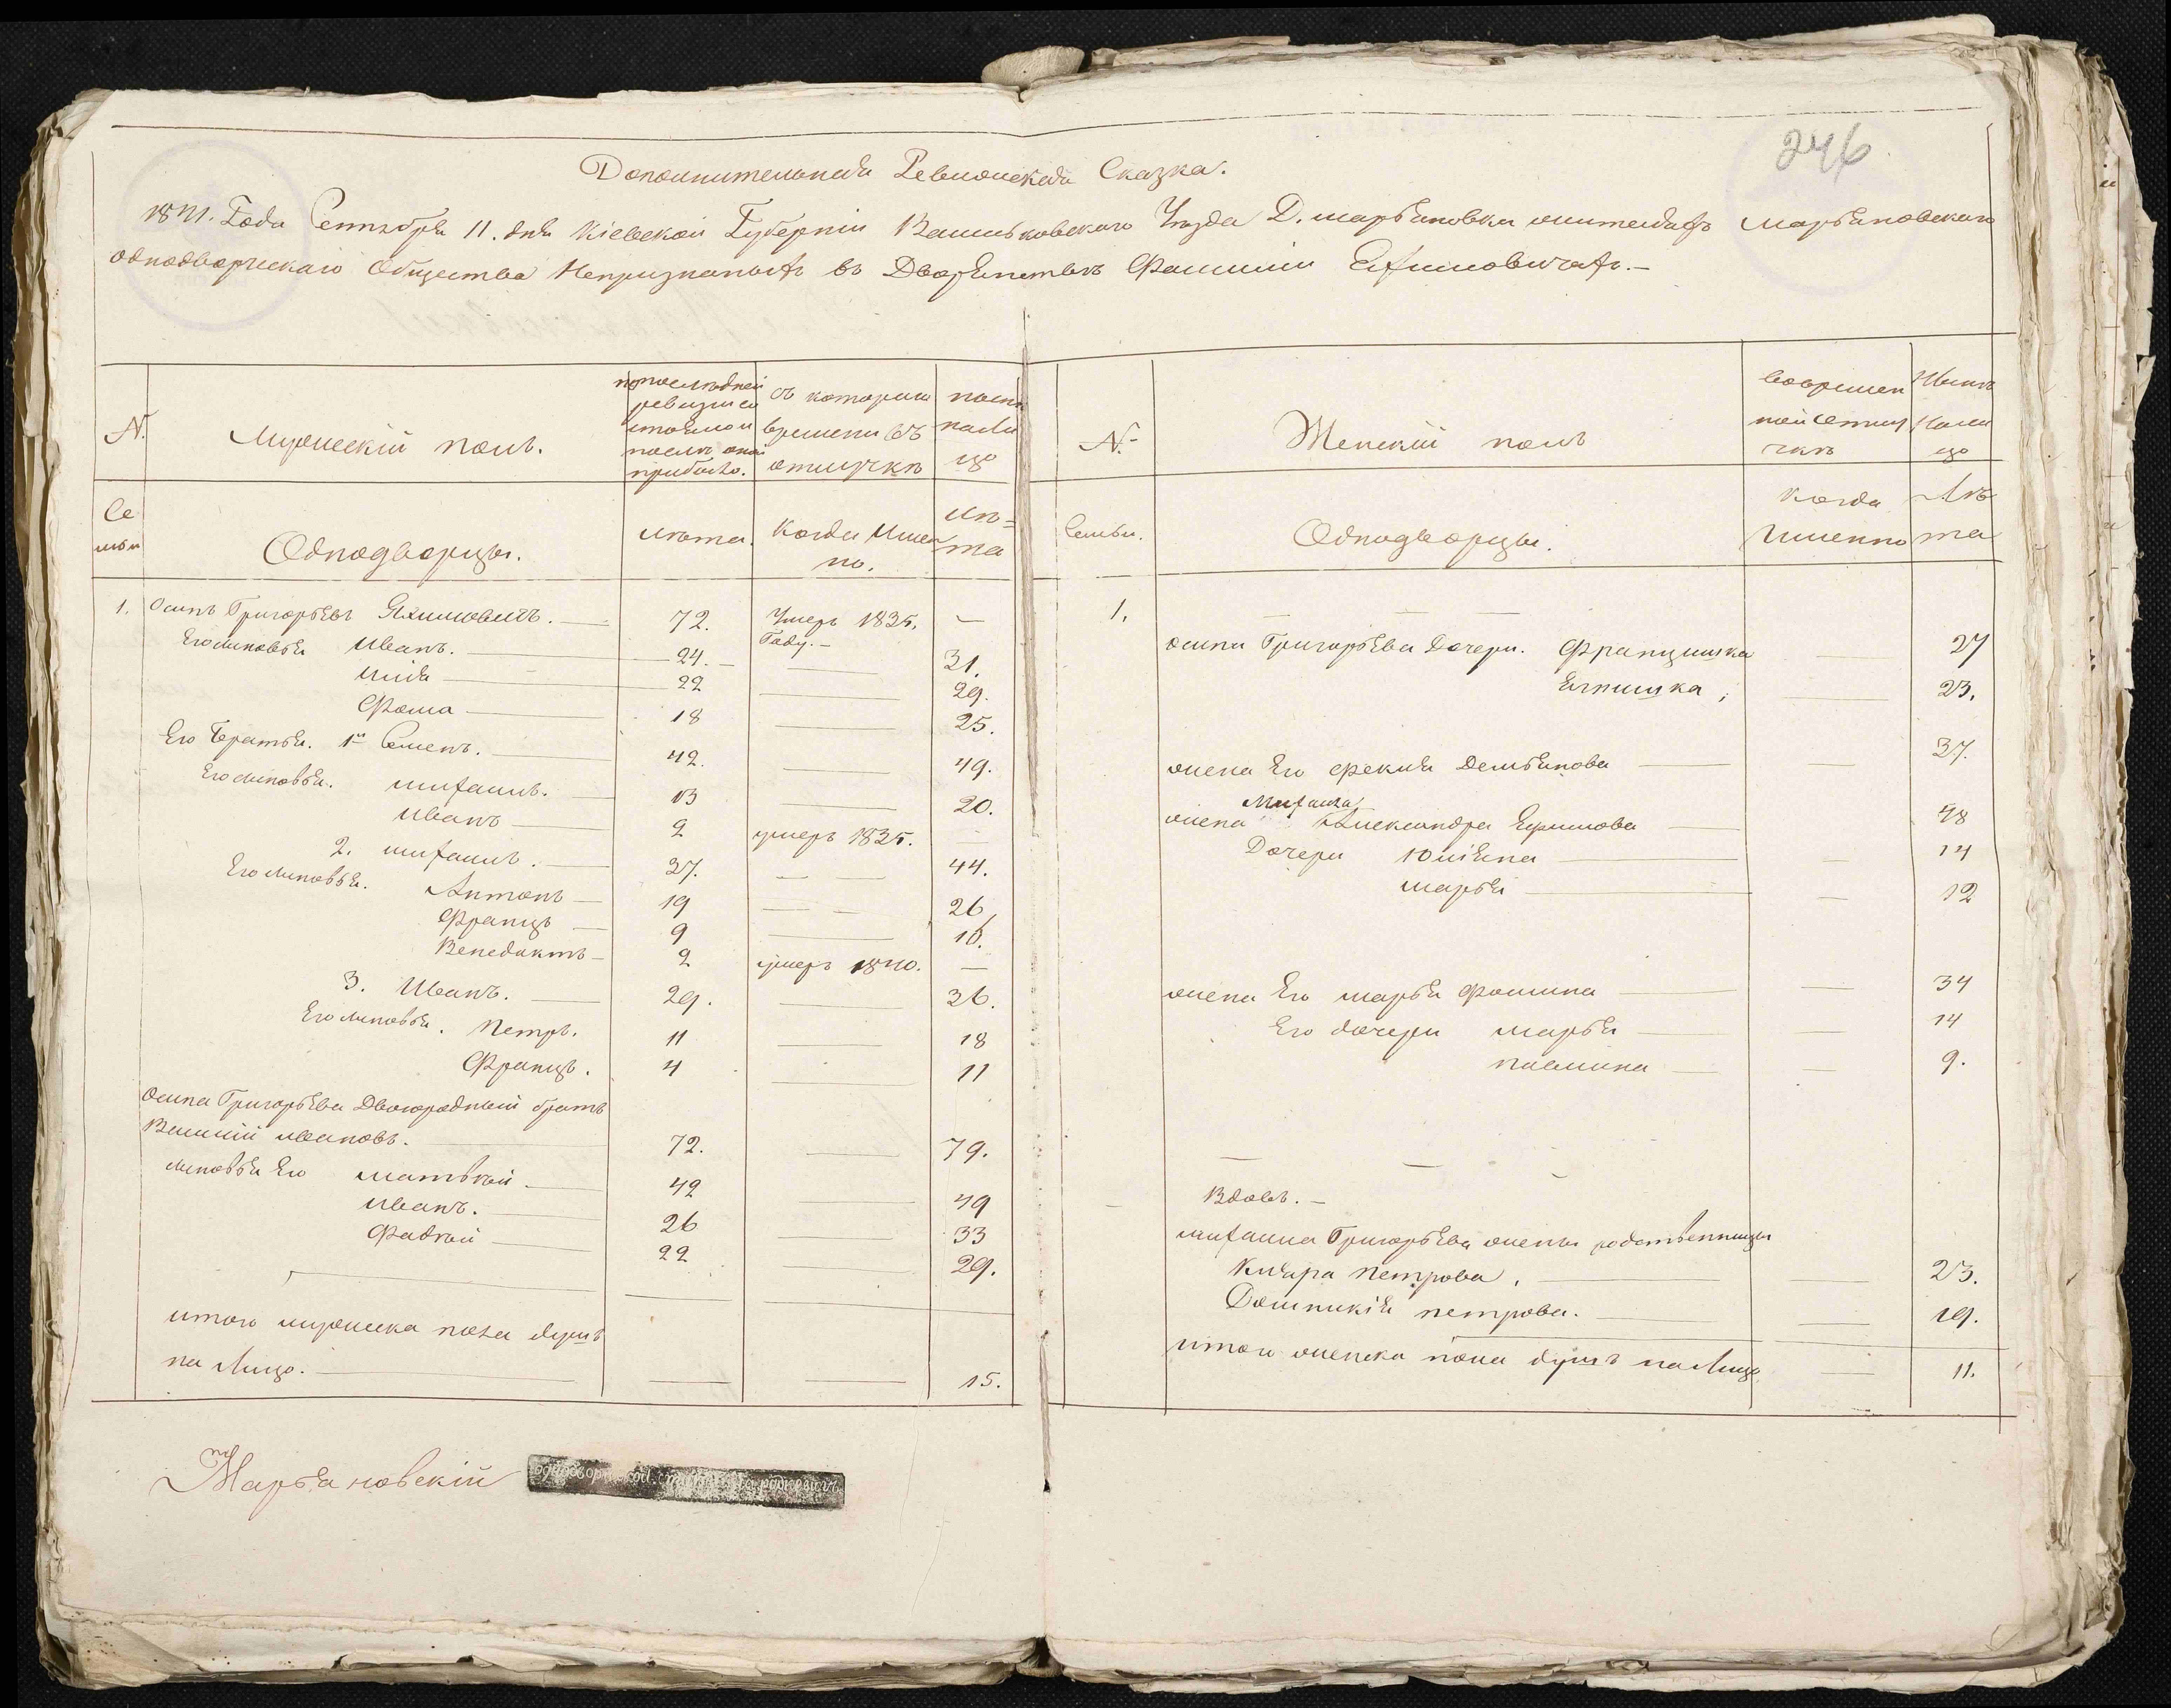 246
Дополнительная Ревизская Сказка.
1841. Года Сентября 11. дня Кіевской Губерніи Васильковскаго Уезда Д. Марьяновки жителяхъ Марьяновскаго
однодворческаго Общества Непризнаныхъ въ Дворянствѣ Фамиліи Ехимовичахъ.—
N.
Мужескій полъ.
по последней
ревизіи
состояло и
послѣ оной
прибыло.
съ котораго
времени въ
отлучкѣ
нын
нали
цо
Се
мьи
Однодворцы.
лѣта.
Когда Имен
но.
лѣ=
та
1. Осипъ Григорьевъ Яхимовичъ. — 72. Умеръ 1835. —
Году.—
Его сыновья Иванъ. — 24. — 31.
Илія — 22 — 29.
Фома — 18 — 25.
Его братья. 1й Семенъ. — 42. — 49.
Его сыновья. Михаилъ. — 13 — 20.
Иванъ — 2 умеръ 1835. —
2. Михаилъ. — 37. — — 44.
Его сыновья. Антонъ — 19 — — 26
Францъ — 9 — 16.
Венедиктъ — 2 умеръ 1840. —
3. Иванъ. — 29. — 36.
Его сыновья. Петръ. 11 — 18
Францъ. 4 — 11
Осипа Григорьева Двоюродный братъ
Василій Ивановъ. — 72. — 79.
сыновья Его Матвѣй — 42 — 49
Иванъ. — 26 — 33
Фадѣй — 22 — 29.
итого мужеска пола душъ
на лицо. — — — 15.
Марьяновскій
N.
Женскій полъ
вовремен
ной отлу
чкѣ
Нынѣ
Нали
цо
Семьи.
Однодворцы.
Когда
Именно
Лѣ
та
1. — — —
Осипа Григорьева дочери. Францишка — 27
Агнишка, — 23.
жена Его Фекла Демьянова — — 37.
Михаила
жена Александра Ефимова — 48
Дочери Юліяна — — 14
Марья — — 12
жена Его Марья Фомина — — 34
Его дочери Марья — — 14
Павлина — — 9.
— — —
— Вдовъ. —
Михаила Григорьева жены родственницы
Клара Петрова. — — 23.
Доминикія Петрова. — — 19.
итого женска пола душъ на Лицо — 11.